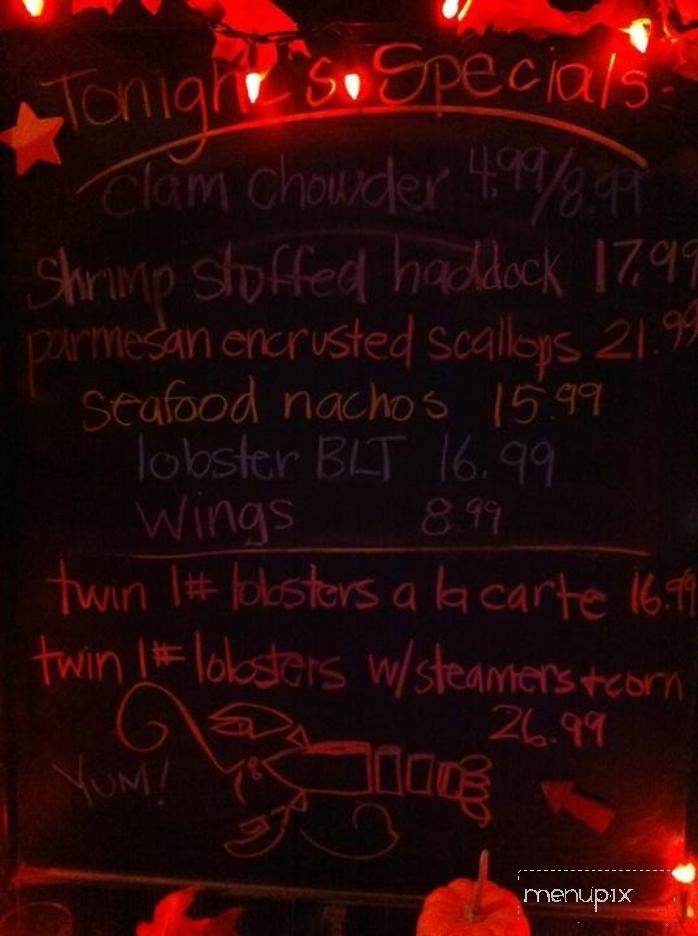 Tonight's Specials:
Clam Chowder 4.99/8.99
Shrimp stuffed haddock 17.99
parmesan encrusted scallops 21.99
Seafood nachos 15.99
lobster BLT 16.99
Wings 8.99
twin 1# lobsters a la carte 16.99
twin 1# lobsters w/steamers+corn
26.99
YUM!
menupix